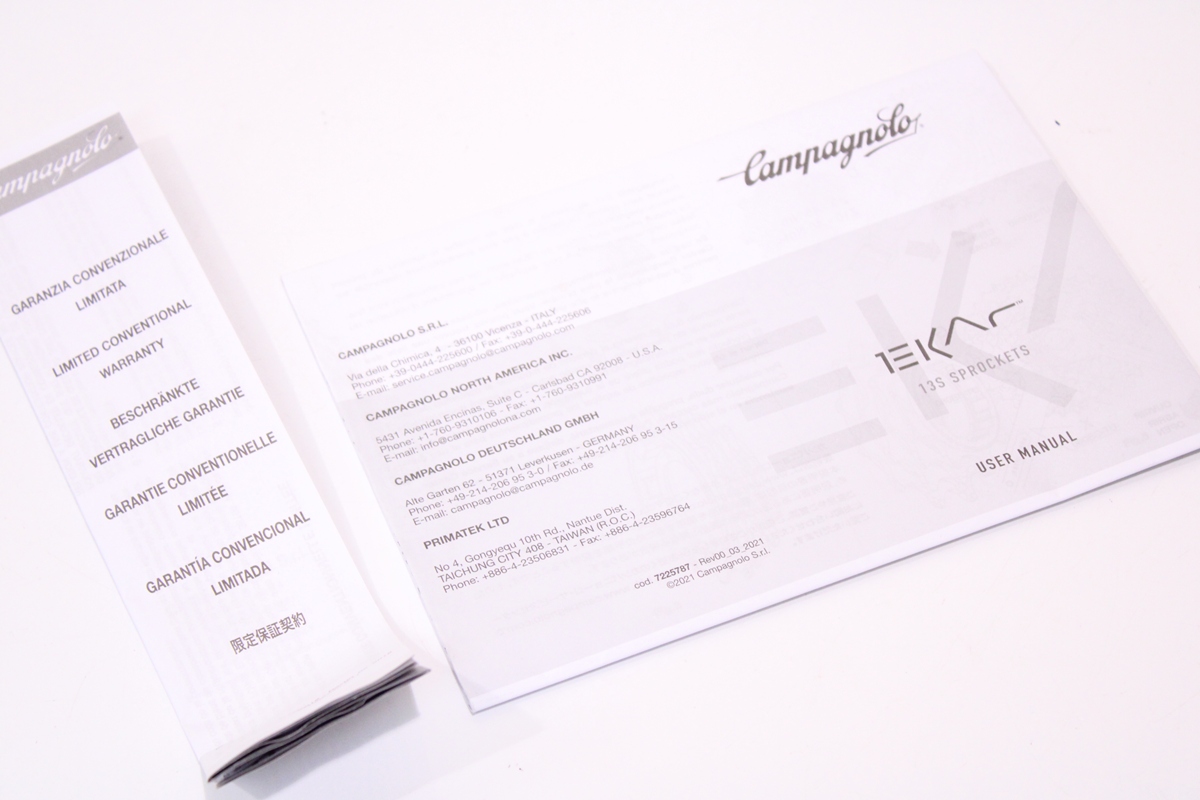 ampagnolo
GARANZIA CONVENZIONALE
LIMITATA
LIMITED CONVENTIONAL
WARRANTY
BESCHRÄNKTE
VERTRAGLICHE GARANTIE
GARANTIE CONVENTIONELLE
LIMITÉE
GARANTÍA CONVENCIONAL
LIMITADA
限定保証契約
Campagnolo
CAMPAGNOLO S.R.L.
Via della Chimica, 4 - 36100 Vicenza - ITALY
Phone: +39-0444-225600 / Fax: +39-0-444-225606
E-mail: service.campagnolo@campagnolo.com
CAMPAGNOLO NORTH AMERICA INC.
5431 Avenida Encinas, Suite C - Carlsbad CA 92008 - U.S.A.
Phone: +1-760-9310106 - Fax: +1-760-9310991
E-mail: info@campagnolona.com
CAMPAGNOLO DEUTSCHLAND GMBH
Alte Garten 62 - 51371 Leverkusen - GERMANY
Phone: +49-214-206 95 3-0 / Fax: +49-214-206 95 3-15
E-mail: campagnolo@campagnolo.de
PRIMATEK LTD
No 4, Gongyequ 10th Rd., Nantue Dist.
TAICHUNG CITY 408 - TAIWAN (R.O.C.)
Phone: +886-4-23506831 - Fax: +886-4-23596764
cod. 7225787 - Rev00_03_2021
©2021 Campagnolo S.r.l.
EKAR™
13S SPROCKETS
USER MANUAL